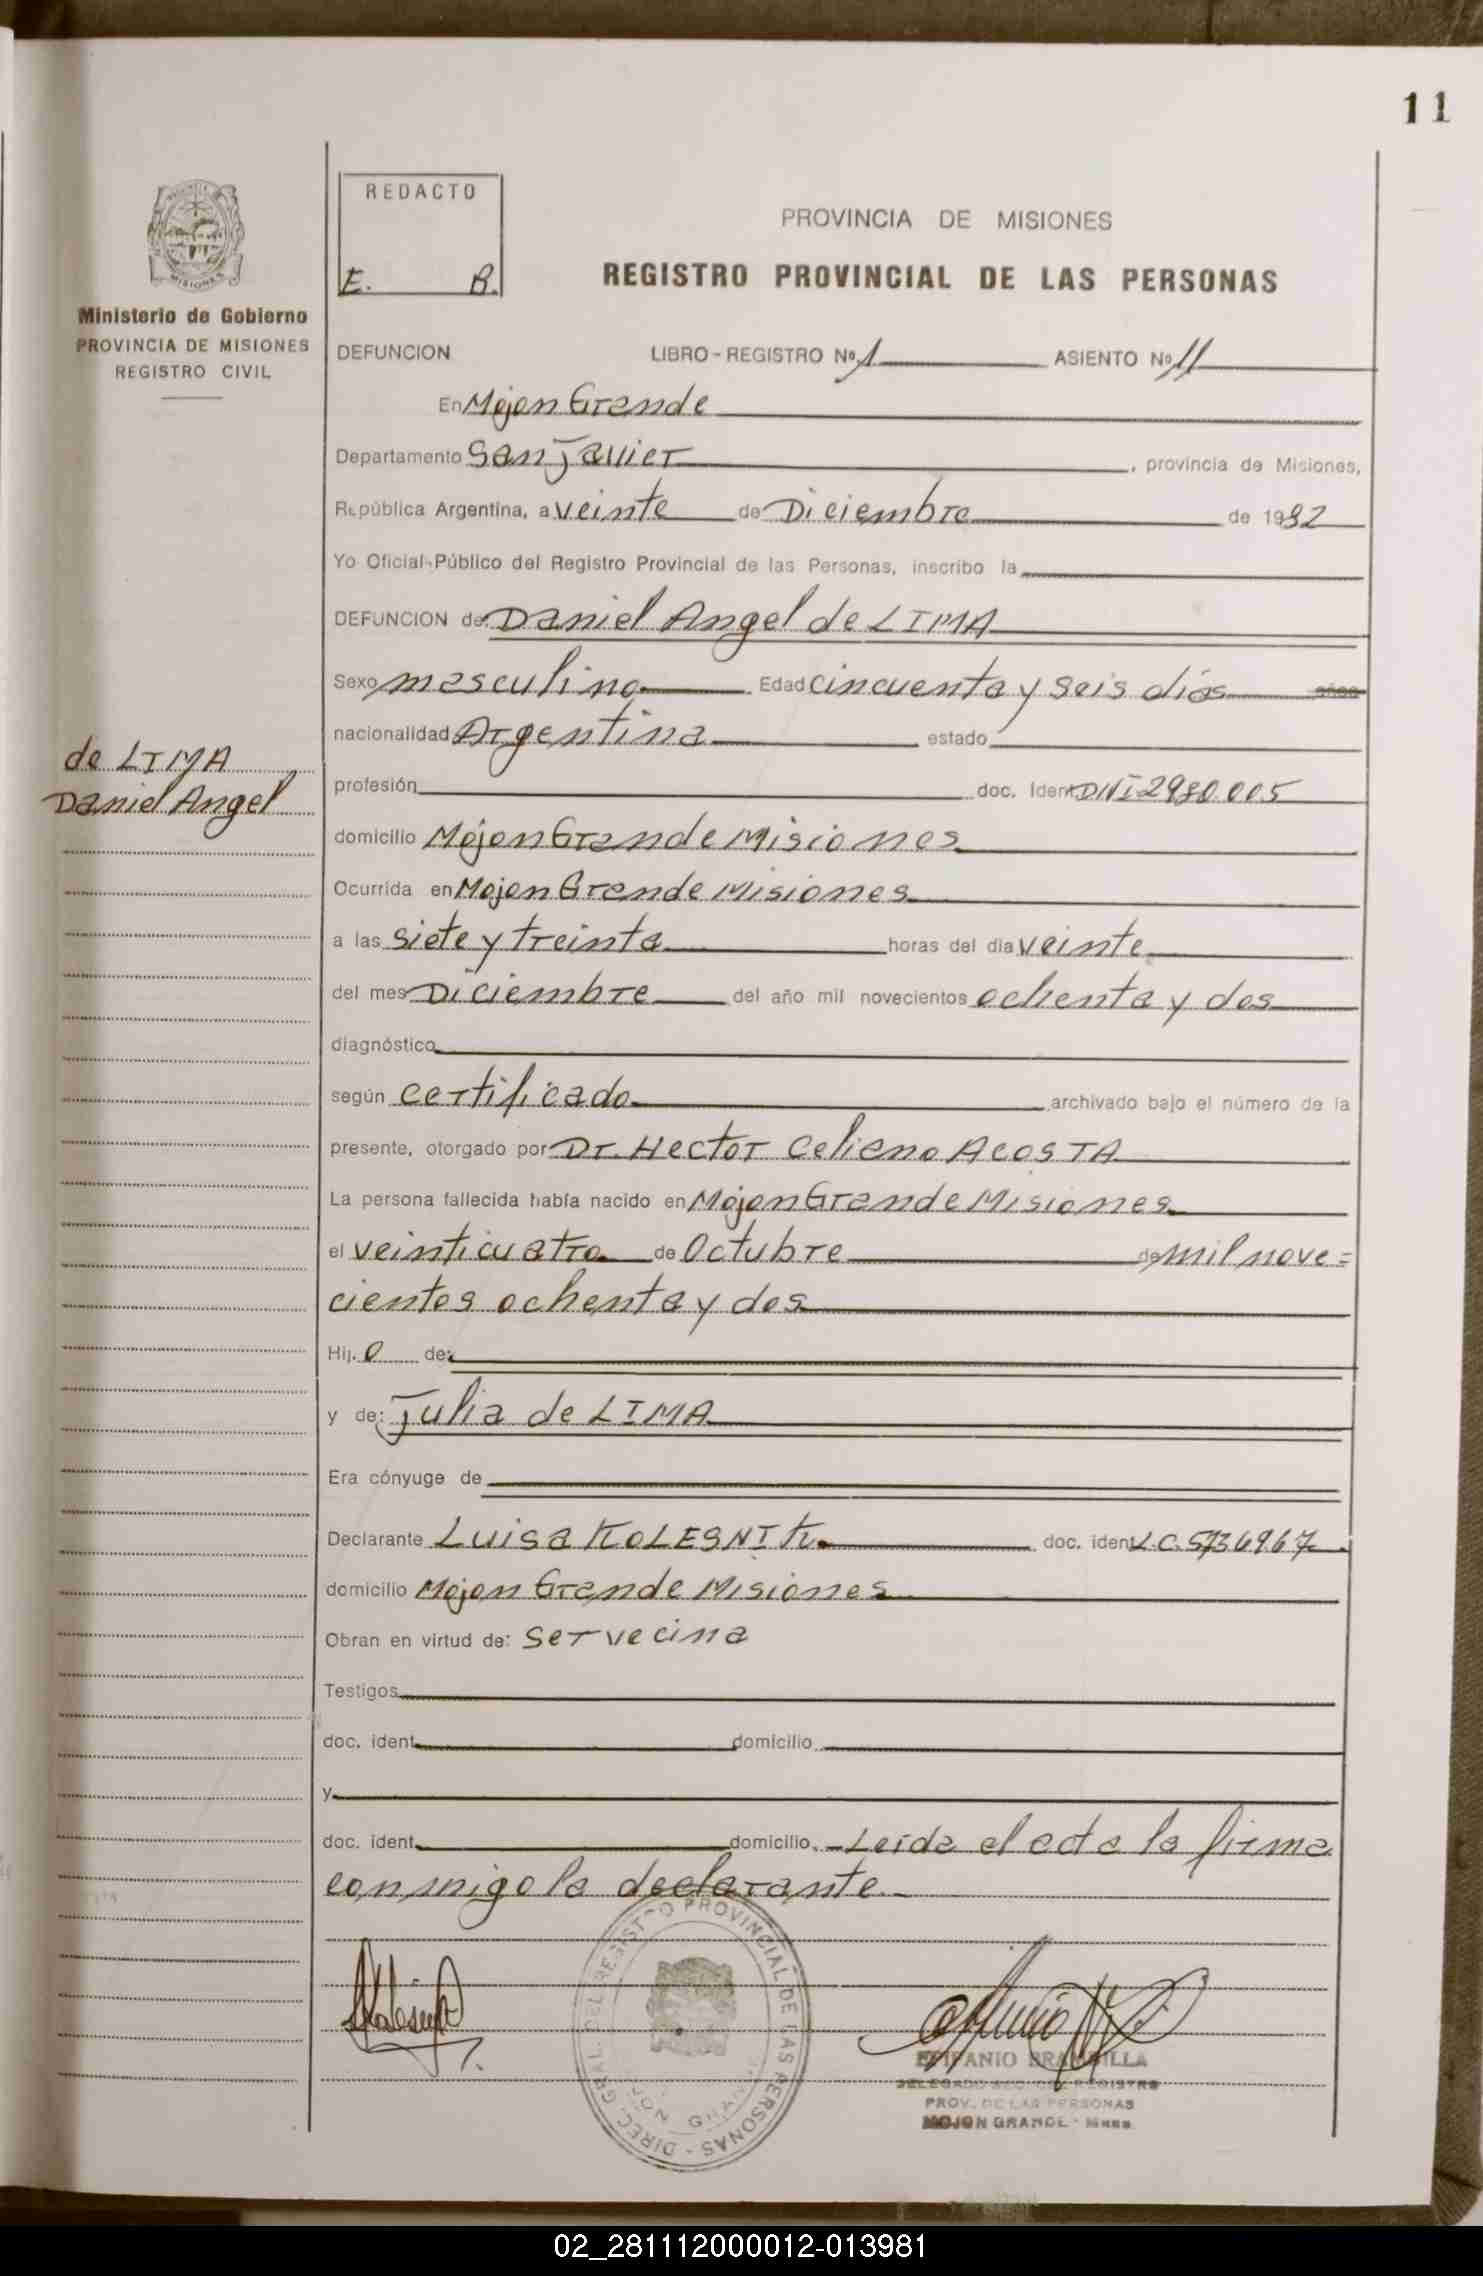 11
REDACTO
E. B.
PROVINCIA DE MISIONES
REGISTRO PROVINCIAL DE LAS PERSONAS
MISIONES
Ministerio de Gobierno
PROVINCIA DE MISIONES
REGISTRO CIVIL
DEFUNCION LIBRO-REGISTRO Nº 1 ASIENTO Nº 11
En Mojon Grande
Departamento San Javier, provincia de Misiones,
República Argentina, a veinte de Diciembre de 1982
Yo Oficial Público del Registro Provincial de las Personas, inscribo la
DEFUNCION de: Daniel Angel de LIMA
Sexo masculino Edad cincuenta y seis días años
nacionalidad Argentina estado
de LIMA
Daniel Angel
profesión doc. ident. DNI 2980.005
domicilio Mojon Grande Misiones
Ocurrida en Mojon Grande Misiones
a las siete y treinta horas del dia veinte
del mes Diciembre del año mil novecientos ochenta y dos
diagnóstico
según certificado archivado bajo el número de la
presente, otorgado por Dr. Hector Celieno ACOSTA
La persona fallecida había nacido en Mojon Grande Misiones
el veinticuatro de Octubre de mil nove=
cientos ochenta y dos
Hij. o de:
y de: Julia de LIMA
Era cónyuge de
Declarante Luisa KOLESNIK. doc. ident. L.C. 5736967
domicilio Mojon Grande Misiones
Obran en virtud de: ser vecina
Testigos
doc. ident. domicilio
y
doc. ident. domicilio. - Leida el acta la firma
conmigo la declarante.-
DIREC. GRAL. DEL REGISTRO PROVINCIAL DE LAS PERSONAS
EPIFANIO BRAMBILLA
DELEGADO SEC. DEL REGISTRO
PROV. DE LAS PERSONAS
MOJON GRANDE - Mnes.
02_281112000012-013981